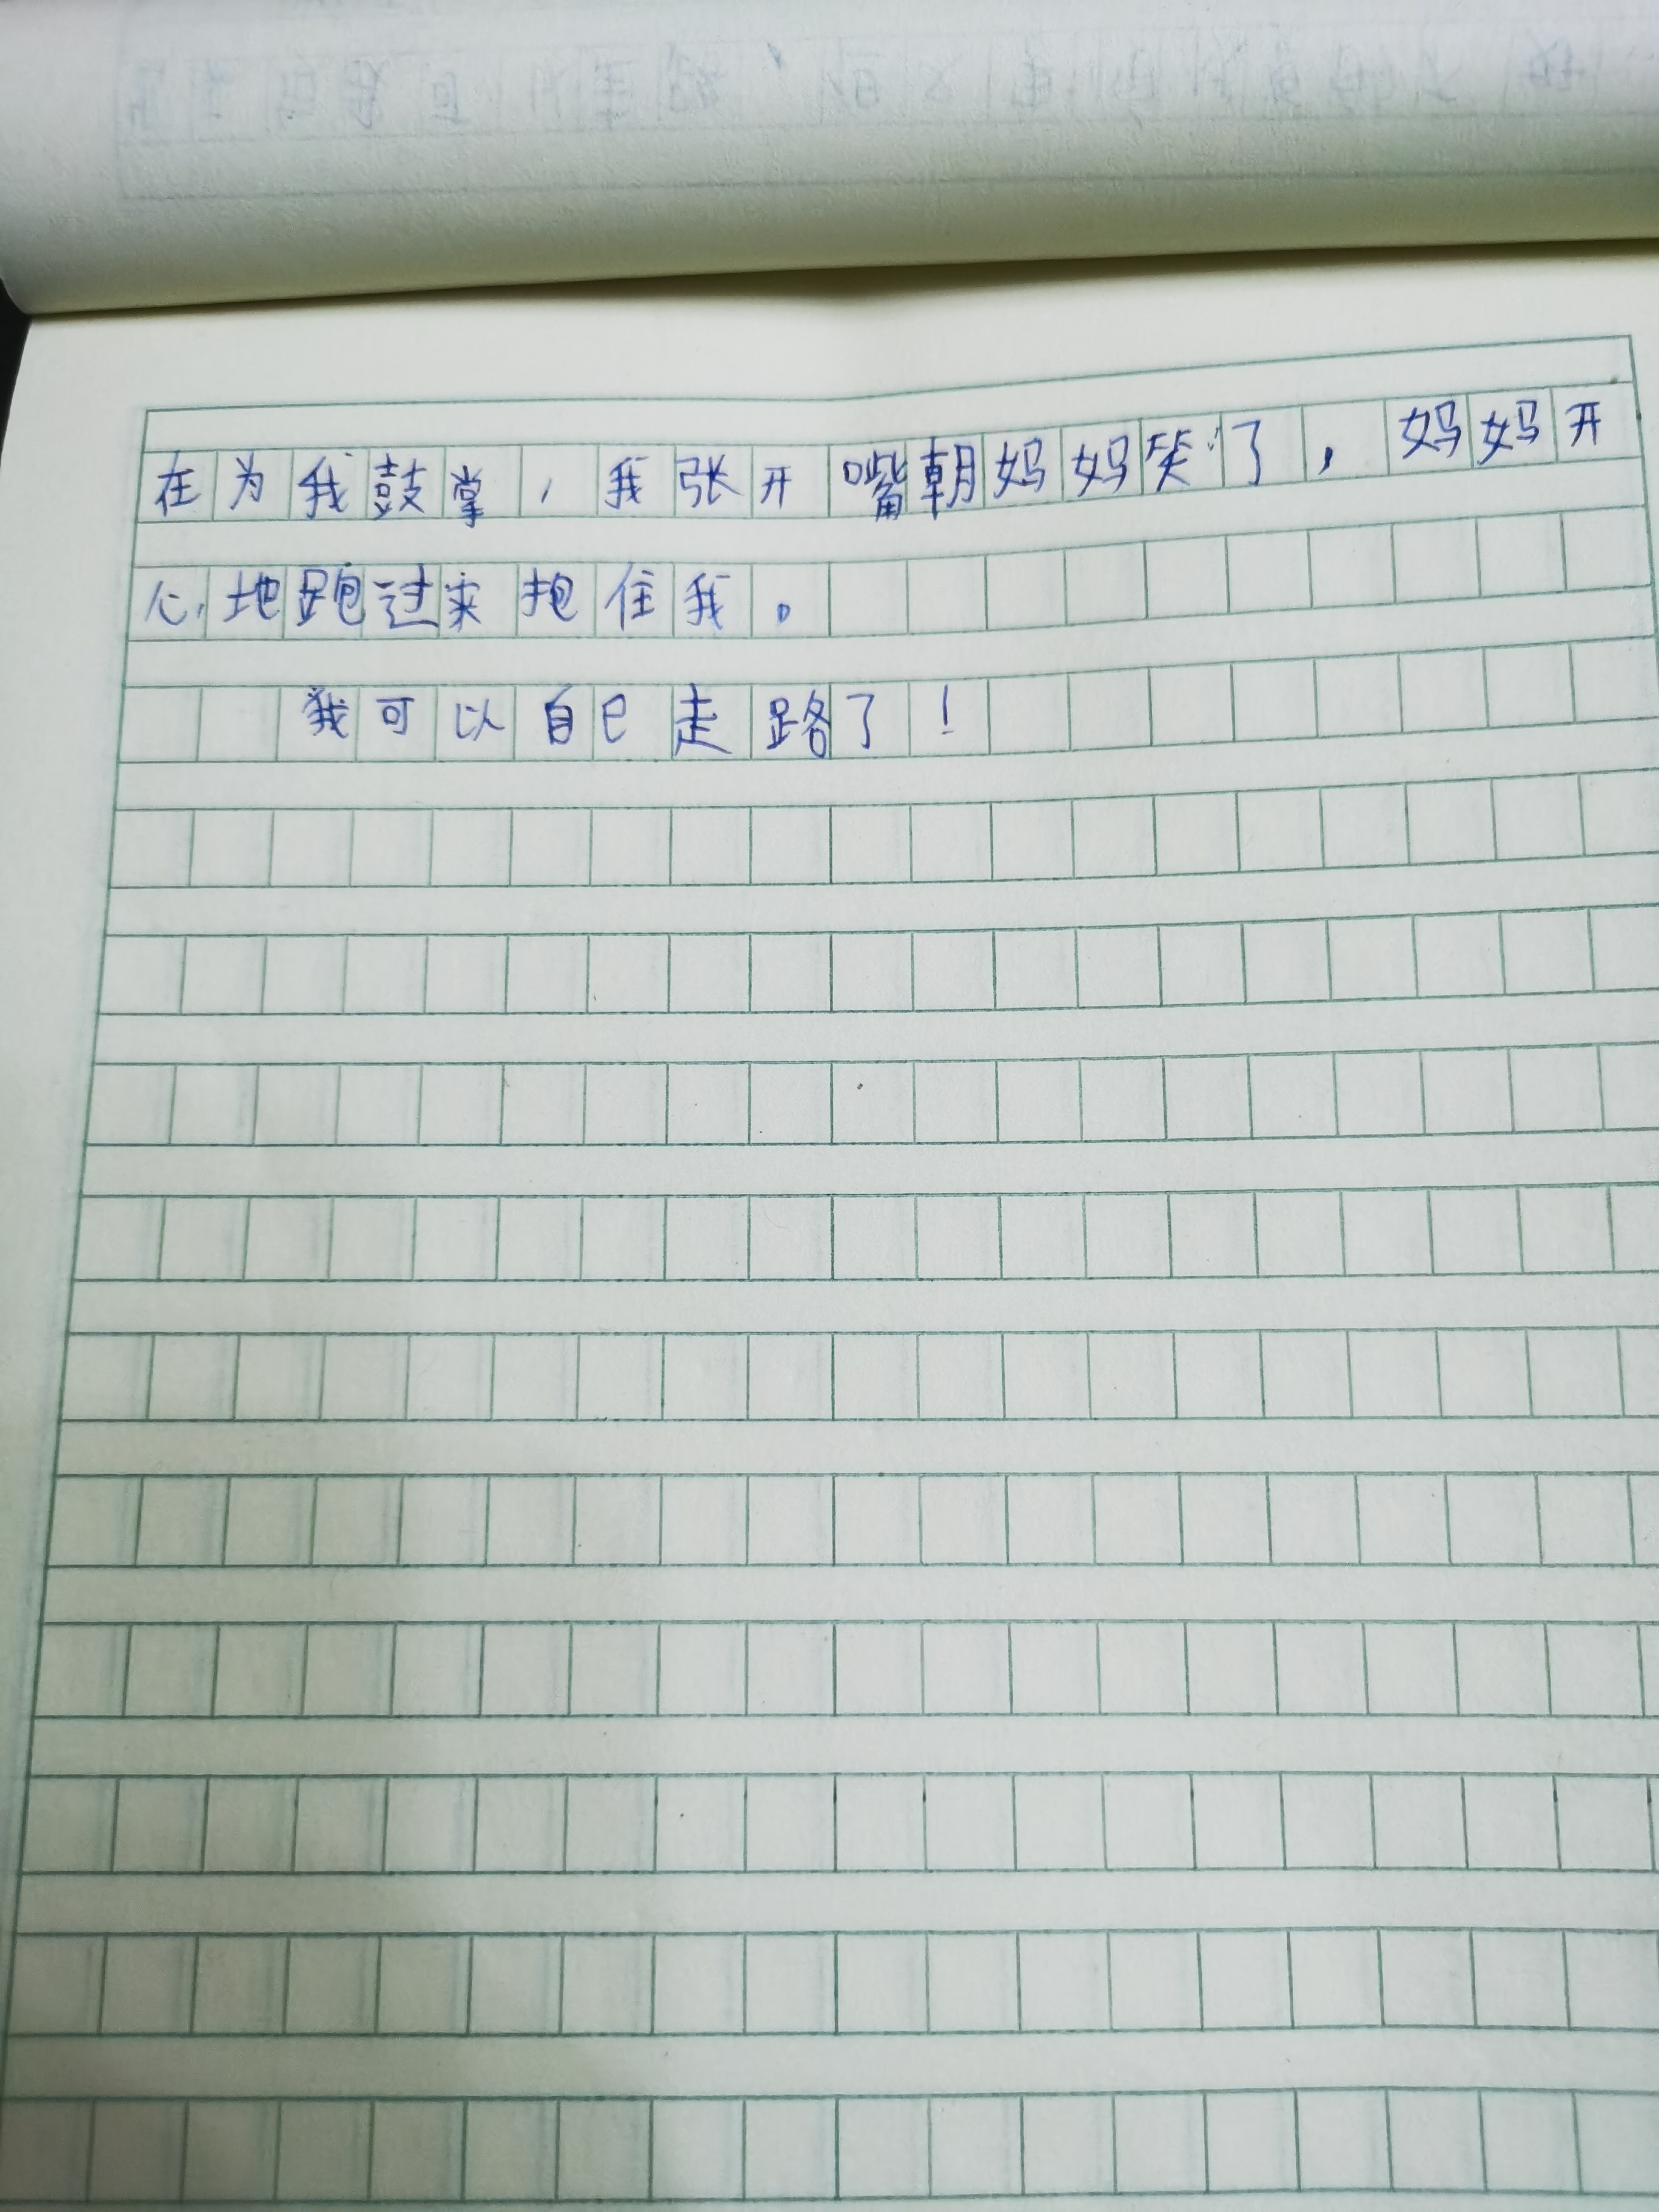 在为我鼓掌，我张开嘴朝妈妈笑了，妈妈开
心地跑过来抱住我。
我可以自己走路了！